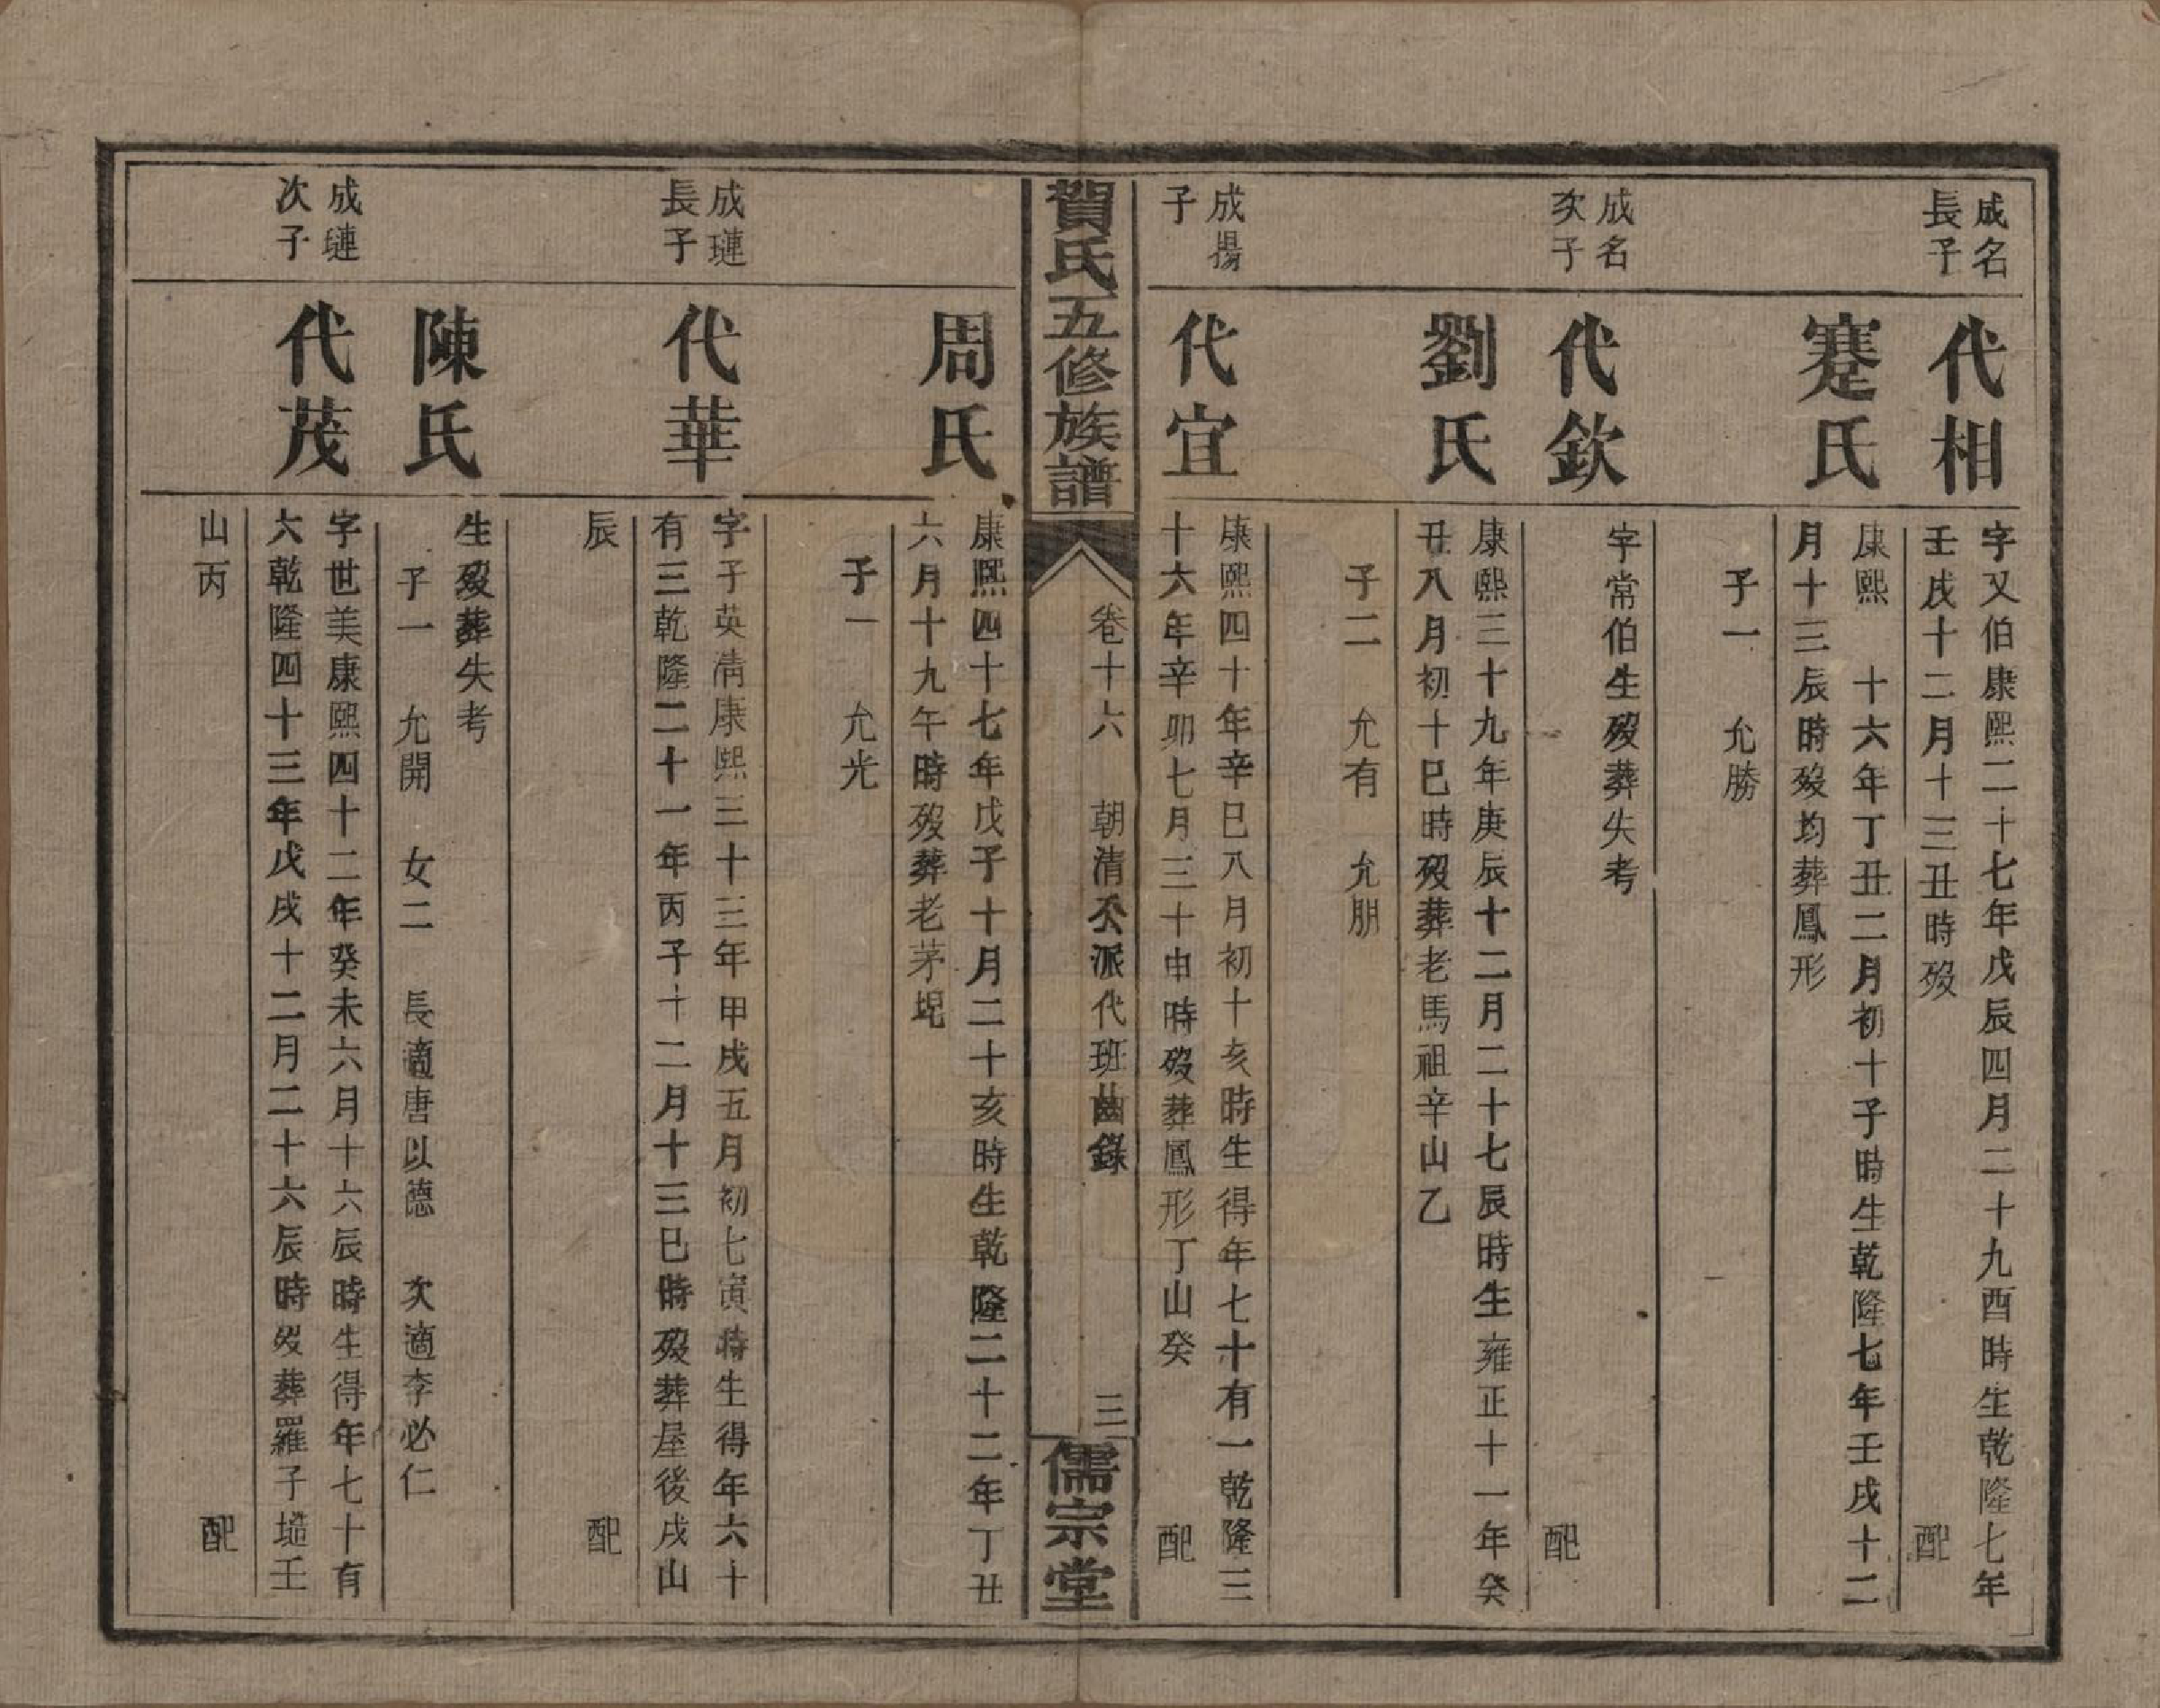 成名
長子
代相
字又伯康熙二十七年戊辰四月二十九酉時生乾隆七年
壬戌十二月十三丑時歿 配
蹇氏
康熙 十六年丁丑二月初十子時生乾隆七年壬戌十二
月十三辰時歿均葬鳳形
子一 允勝
成名
次子
代欽
字常伯生歿葬失考
配
劉氏
康熙三十九年庚辰十二月二十七辰時生雍正十一年癸
丑八月初十巳時歿葬老馬祖辛山乙
子二 允有 允朋
成揚
子
代宜
康熙四十年辛巳八月初十亥時生得年七十有一乾隆三
十六年辛卯七月三十申時歿葬鳳形丁山癸 配
賀氏五修族譜
卷十六 朝清公派代班齒錄 三
儒宗堂
周氏
康熙四十七年戊子十月二十亥時生乾隆二十二年丁丑
六月十九午時歿葬老茅垸
子一 允光
成璉
長子
代華
字子英清康熙三十三年甲戌五月初七寅時生得年六十
有三乾隆二十一年丙子十二月十三巳時歿葬屋後戌山
辰 配
陳氏
生歿葬失考
子一 允開 女二 長適唐以德 次適李必仁
成璉
次子
代茂
字世美康熙四十二年癸未六月十六辰時生得年七十有
六乾隆四十三年戊戌十二月二十六辰時歿葬羅子塢壬
山丙 配